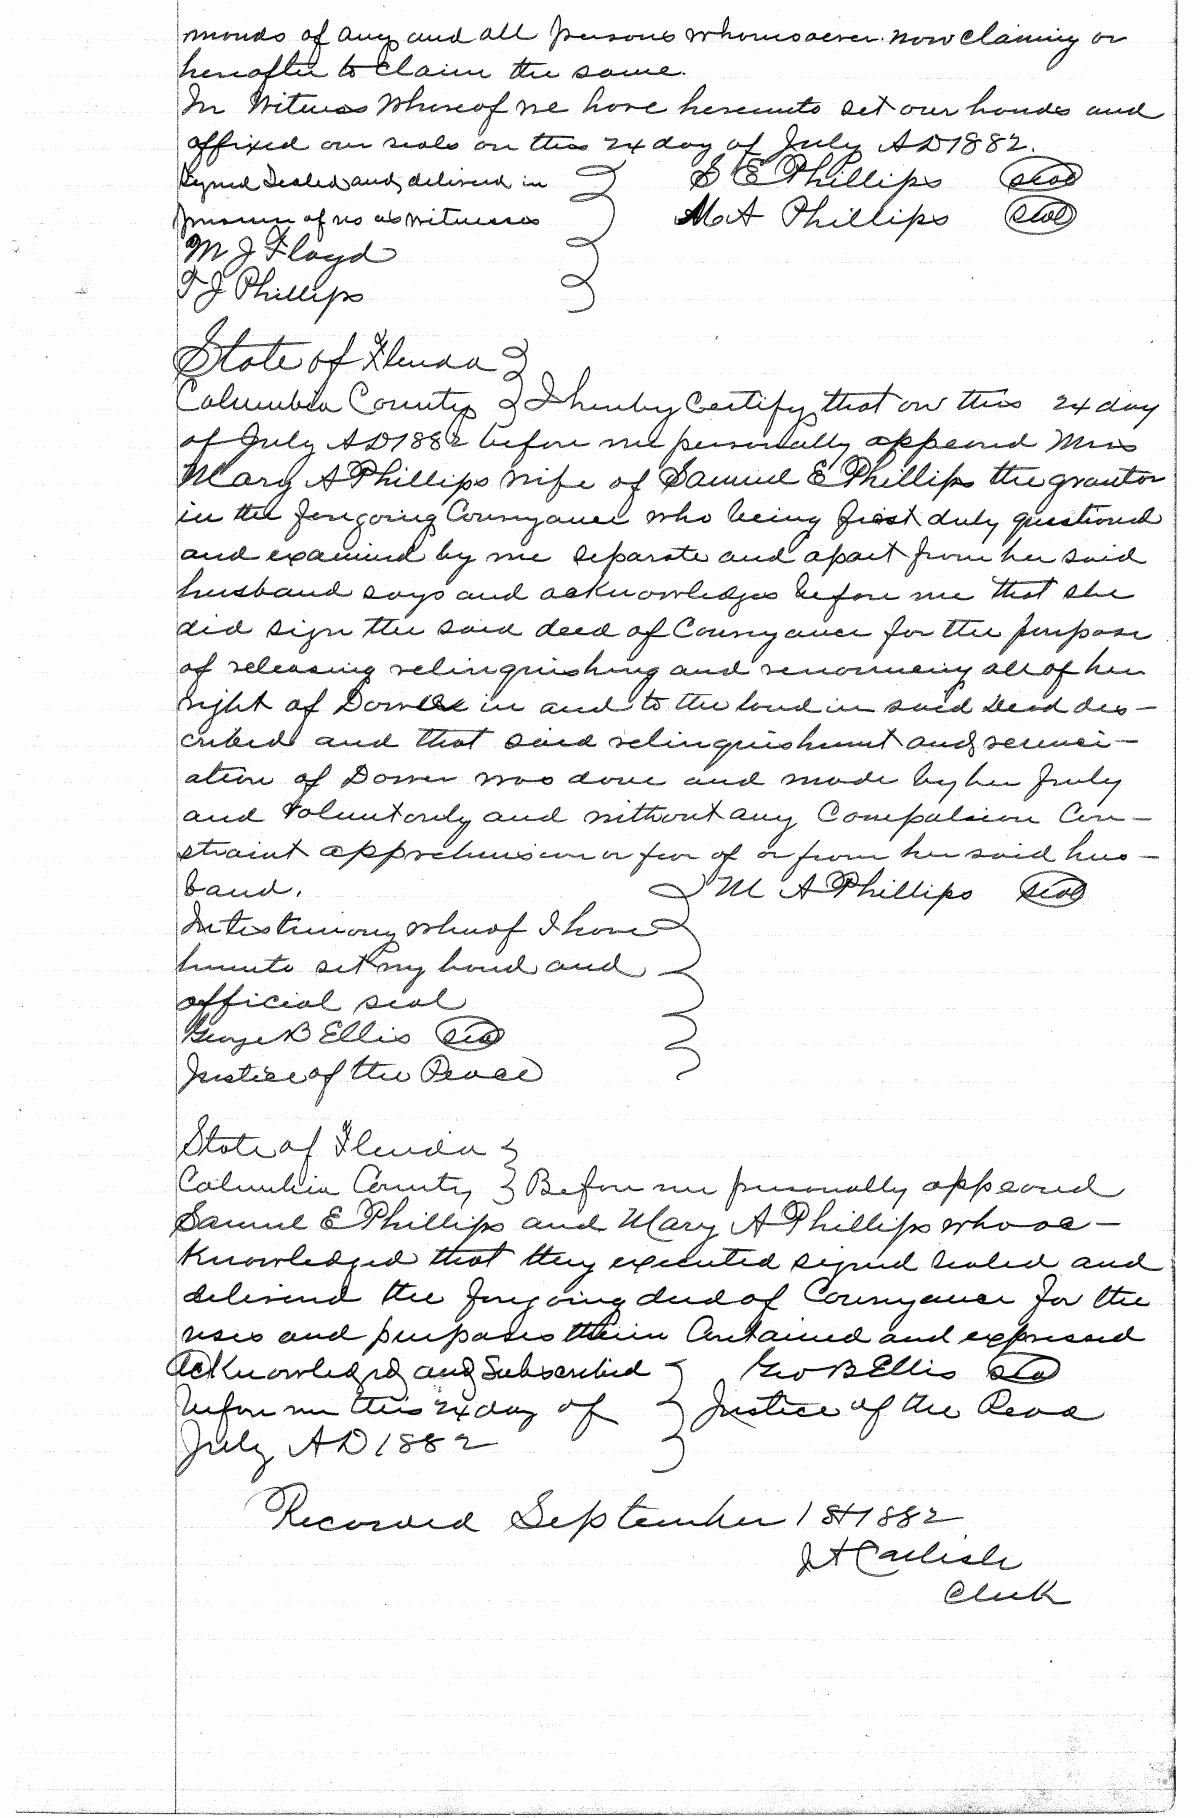 mands of any and all persons whomsoever now claiming or
hereafter to claim the same.
In Witness Whereof we have hereunto set our hands and
affixed our seals on this 24 day of July AD 1882.
Signed Sealed and delivered in } S E Phillips (seal)
presence of us as witnesses } M A Phillips (seal)
M J Floyd
T J Phillips
State of Florida }
Columbia County } I hereby Certify that on this 24 day
of July AD 1882 before me personally appeared Mrs
Mary A Phillips wife of Samuel E Phillips the grantor
in the foregoing Conveyance who being first duly questioned
and examined by me separate and apart from her said
husband says and acknowledges before me that she
did sign the said deed of Conveyance for the purpose
of releasing relinquishing and renouncing all of her
right of Dower in and to the land in said Deed des-
cribed and that said relinquishment and renunci-
ation of Dower was done and made by her freely
and Voluntarily and without any Compulsion Con-
straint apprehension or fear of or from her said hus-
band. } M A Phillips (seal)
In testimony whereof I have
hereunto set my hand and
official seal
George B Ellis (seal)
Justice of the Peace
State of Florida }
Columbia County } Before me personally appeared
Samuel E Phillips and Mary A Phillips who ac-
knowledged that they executed signed sealed and
delivered the foregoing deed of Conveyance for the
uses and purposes therein Contained and expressed
Acknowledged and Subscribed } Geo B Ellis (seal)
before me this 24 day of } Justice of the Peace
July AD 1882
Recorded September 1st 1882
Carlisle
Clerk